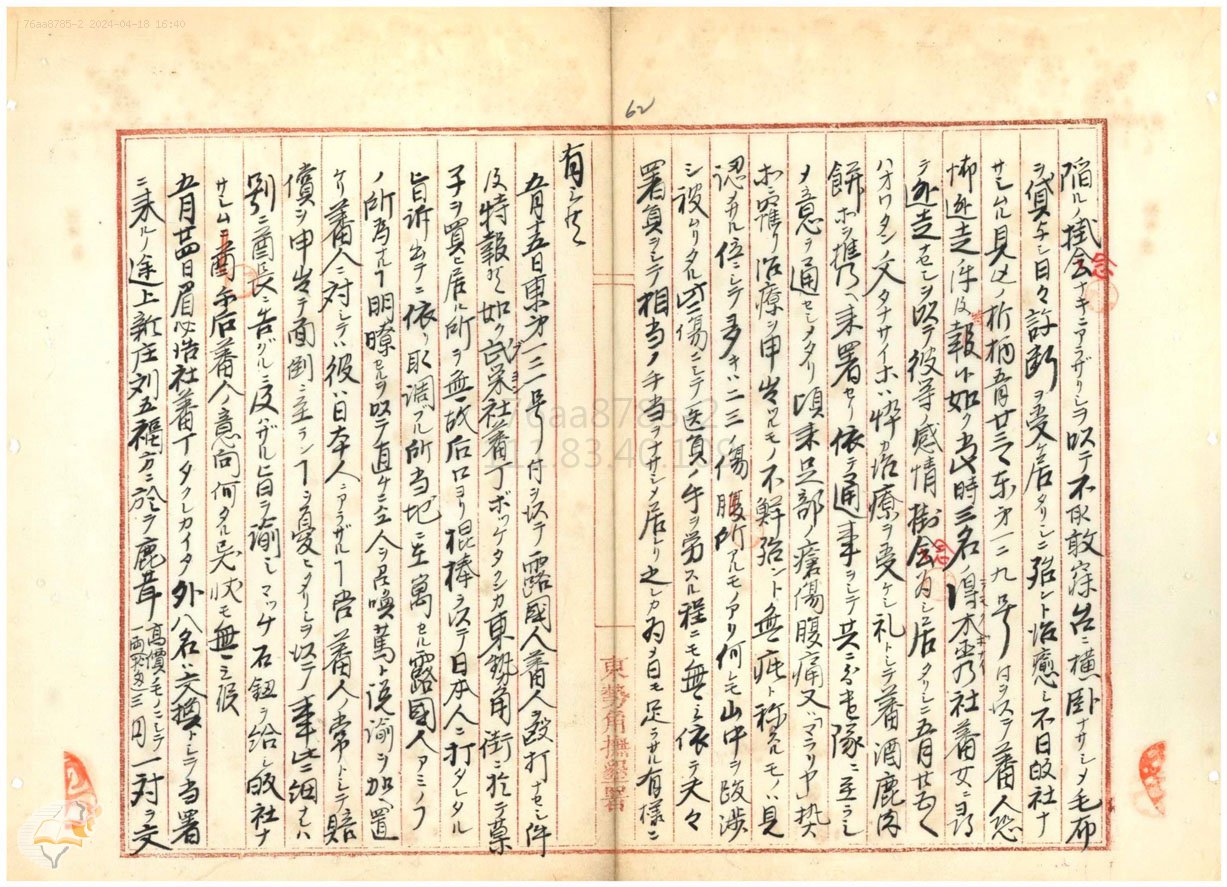 76aa8785-2 2024-04-18 16:40
62
陥ルノ掛念ナキニアラザリシヲ以テ不取敢寐台ニ横臥ナサシメ毛布
ヲ貸与シ日々診断ヲ受ケ居タリシニ殆ント治癒シ不日皈社ナ
サシムル見込ノ折柄五月廿三日東第一二九号ヲ以テ蕃人
逃走件及報告如ク当時三名ノ得木巫乃社蕃女ニ
テ逃走セシヲ以テ彼等感情掛念為シ居タリシニ五月廿
ハオワタン父タナサイホハ忰カ治療ヲ受ケシ礼トシテ蕃酒鹿肉
餅ホヲ携ヘ来署セリ依テ通事ヲシテ共ニ兵隊ニ至ラシ
メ意ヲ通セシメタリ頃来足部ノ瘡傷腹痛又ハマラリヤ熱
ホニ罹リ治療ヲ申出ツルモノ不鮮殆ント無疵ト称スルモノハ見
認サル位ニシテ多キハ二三ノ傷腫所アルモノアリ何レモ山中ヲ跋渉
シ被ムリタル些傷ニシテ医員ノ手ヲ労スル程ニモ無之依テ夫々
署員ヲシテ相当ノ手当ヲナサシメ居レリ之レカ為メ日モ足ラサル有様ニ
有之候
五月十五日東第一三一号ノ付ヲ以テ露國人蕃人ヲ殴打ナセシ件
及特報候如ク武栄社蕃丁ボッケタクシカ東勢角街ニ於テ菓
子ヲ買ヒ居ル所ヲ無故后口ヨリ棍棒ヲ以テ日本人ニ打タレタル
旨訴出テニ依リ取調ブル所当地ニ在寓セル露國人アミノフ
ノ所為ナル丁明瞭セルヲ以テ直チニ仝人ヲ召喚篤ト説諭ヲ加ヘ置
ケリ蕃人ニ対シテハ彼ハ日本人ニアラザル丁尚蕃人ノ常トシテ賠
償ヲ申出テ面倒ニ至ラン丁ヲ憂ヒタリシヲ以テ事些細ナレハ
別ニ酋長ニ告グルニ及ハザル旨ヲ諭シマッチ石鈕ヲ給シ皈社ナ
サシムルニ爾后蕃人ノ意向何タル異状モ無之候
五月廿四日眉必浩社蕃丁タクシカイタ外八名ハ交換トシテ当署
ニ来ルノ途上新庄刘五福方ニ於テ鹿茸高價ノモノニシテ一両三円一対ヲ交
東勢角撫墾署
76aa8785-2